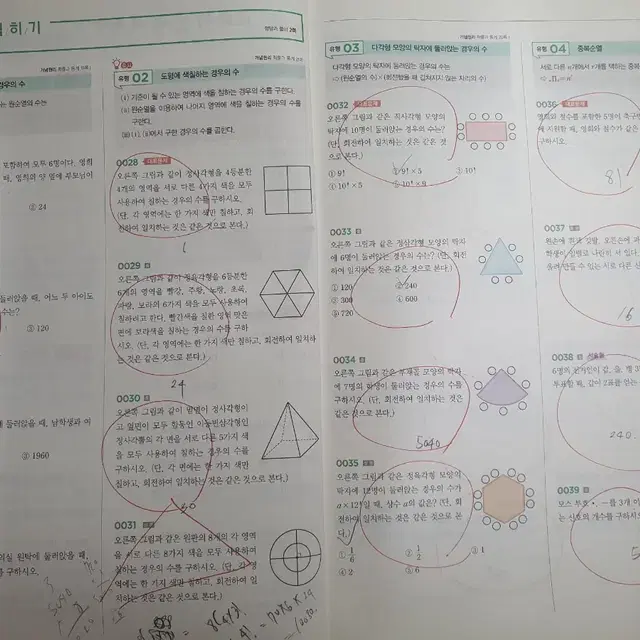 히기
방법과 풀이 2회
경우의 수
는 원순열의 수는
포함하여 모두 6명이다. 영희
② 24
둘러앉을 때, 어느 두 아이도
수는?
③ 120
둘러앉을 때, 남학생과 여
③ 1960
의실 원탁에 둘러앉을 때,
구하시오.
유형 02 도형에 색칠하는 경우의 수
(i) 기준이 될 수 있는 영역에 색을 칠하는 경우의 수를 구한다.
(ii) 원순열을 이용하여 나머지 영역에 색을 칠하는 경우의 수를
구한다.
(iii) (i), (ii)에서 구한 경우의 수를 곱한다.
0028 대표문제
오른쪽 그림과 같이 정사각형을 4등분한
4개의 영역을 서로 다른 4가지 색을 모두
사용하여 칠하는 경우의 수를 구하시오.
(단, 각 영역에는 한 가지 색만 칠하고, 회
전하여 일치하는 것은 같은 것으로 본다.)
0029
오른쪽 그림과 같이 정육각형을 6등분한
6개의 영역을 빨강, 주황, 노랑, 초록,
파랑, 보라의 6가지 색을 모두 사용하여
칠하려고 한다. 빨간색을 칠한 영역 맞은
편에 보라색을 칠하는 경우의 수를 구하
시오. (단, 각 영역에는 한 가지 색만 칠하고, 회전하여 일치하
는 것은 같은 것으로 본다.)
24
0030
오른쪽 그림과 같이 밑면이 정사각형이
고 옆면이 모두 합동인 이등변삼각형인
정사각뿔의 각 면을 서로 다른 5가지 색
을 모두 사용하여 칠하는 경우의 수를
구하시오. (단, 각 면에는 한 가지 색만
칠하고, 회전하여 일치하는 것은 같은 것으로 본다.)
0031
오른쪽 그림과 같은 원판의 8개의 각 영역
을 서로 다른 8가지 색을 모두 사용하여
칠하는 경우의 수를 구하시오. (단, 각 영
역에는 한 가지 색만 칠하고, 회전하여 일
치하는 것은 같은 것으로 본다.)
유형 03 다각형 모양의 탁자에 둘러앉는 경우의 수
다각형 모양의 탁자에 둘러앉는 경우의 수는
⇨ (원순열의 수) × (회전했을 때 겹쳐지지 않는 자리의 수)
0032 대표문제
오른쪽 그림과 같은 직사각형 모양의
탁자에 10명이 둘러앉는 경우의 수는?
(단, 회전하여 일치하는 것은 같은 것
으로 본다.)
① 9! ② 9!×5 ③ 10!
④ 10!×5 ⑤ 10!×9
0033
오른쪽 그림과 같은 정삼각형 모양의 탁자
에 6명이 둘러앉는 경우의 수는? (단, 회전
하여 일치하는 것은 같은 것으로 본다.)
① 120 ② 240
③ 300 ④ 600
⑤ 720
0034
오른쪽 그림과 같은 부채꼴 모양의 탁자
에 7명의 학생이 둘러앉는 경우의 수를
구하시오. (단, 회전하여 일치하는 것은
같은 것으로 본다.)
5040
0035
오른쪽 그림과 같은 정육각형 모양의
탁자에 12명이 둘러앉는 경우의 수가
a×12!일 때, 상수 a의 값은? (단, 회
전하여 일치하는 것은 같은 것으로 본
다.)
① 1/6 ② 1/2 ③ 1
④ 2 ⑤ 6
유형 04 중복순열
서로 다른 n개에서 r개를 택하는 중복
0036 대표문제
구하시오.
81
0037
16
0038 서술형
240
0039